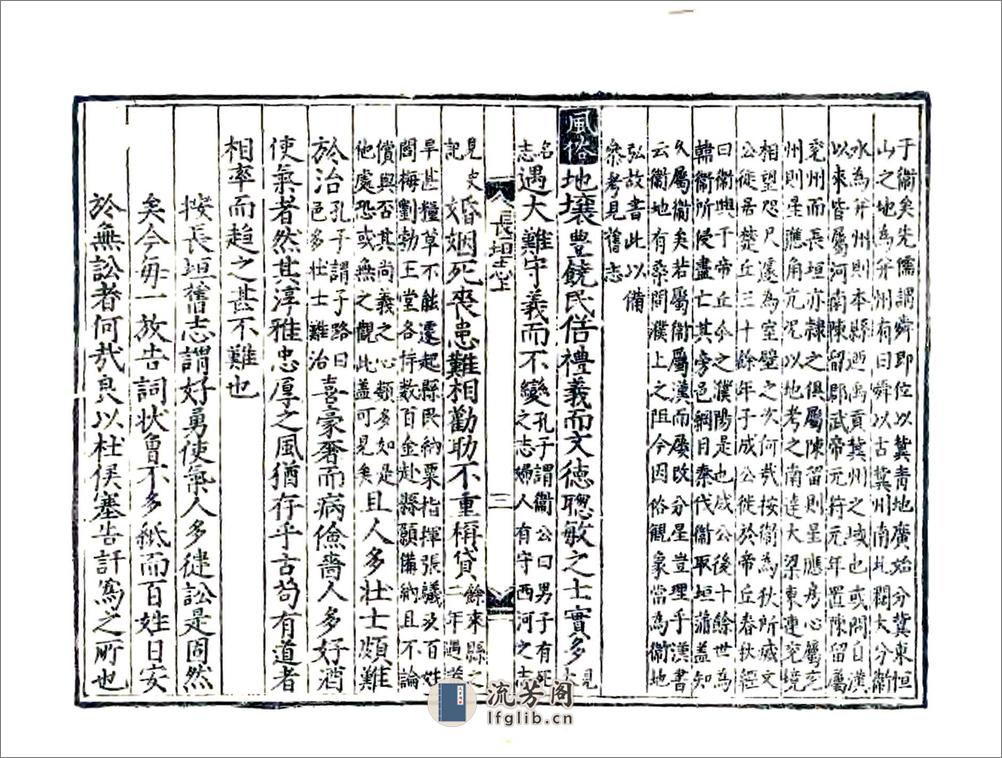 于衞矣先儒謂舜即位以冀青地廣始分冀東恒
山之地為并州有曰舜以古冀州南北闊大分衛
水為并州則本縣迺禹貢冀州之域也或問自漢
以來皆屬河南陳留郡武帝元符元年置陳留屬
兖州而長垣亦隷之俱屬陳留則星應房心屬兖
州則星應角亢况以地考之南達大梁東連兖境
相望咫尺遽為室壁之次何哉按衞為秋所㓕文
公徙居楚丘三十餘年子成公徙於帝丘春秋經
曰衞與于帝丘今之濮陽是也成公後十餘世為
韓衞所侵盡亡其旁邑綱目秦伐衞取垣蒲盖知
久屬衞矣若屬衞屬漢而屬改分星豈理乎漢書
云衞地有桑間濮上之阻今因俗觀象當為衞地
弘故書此以備
叅考見舊志
風俗 地壤豊饒民俗禮義而文德聰敏之士實多見
志 遇大難守義而不變名孔子謂衞公曰男子有死之志婦人有守西河之志
長垣志上
三
見史記 婚姻死喪患難相勸助不重稱貸餘來縣之二年遇
旱甚糧草不能還起縣民納粟指揮張議及百姓
閻梅劉勃王堂各侟數百金赴縣願備納且不論
償與否其尚義之心頗多如是
他處恐或無之觀此盖可見矣 且人多壮士頗難
於治孔子謂子路曰邑多壮士難治 喜豪奢而病儉嗇人多好酒
使氣者然其淳雅忠厚之風猶存乎古苟有道者
相率而趨之甚不難也
按長垣舊志謂好勇使氣人多健訟是固然
矣今毎一放告詞状魯不多紙而百姓日安
於無訟者何哉良以杜俟塞告訐為之所也
流芳阁
lfglib.cn